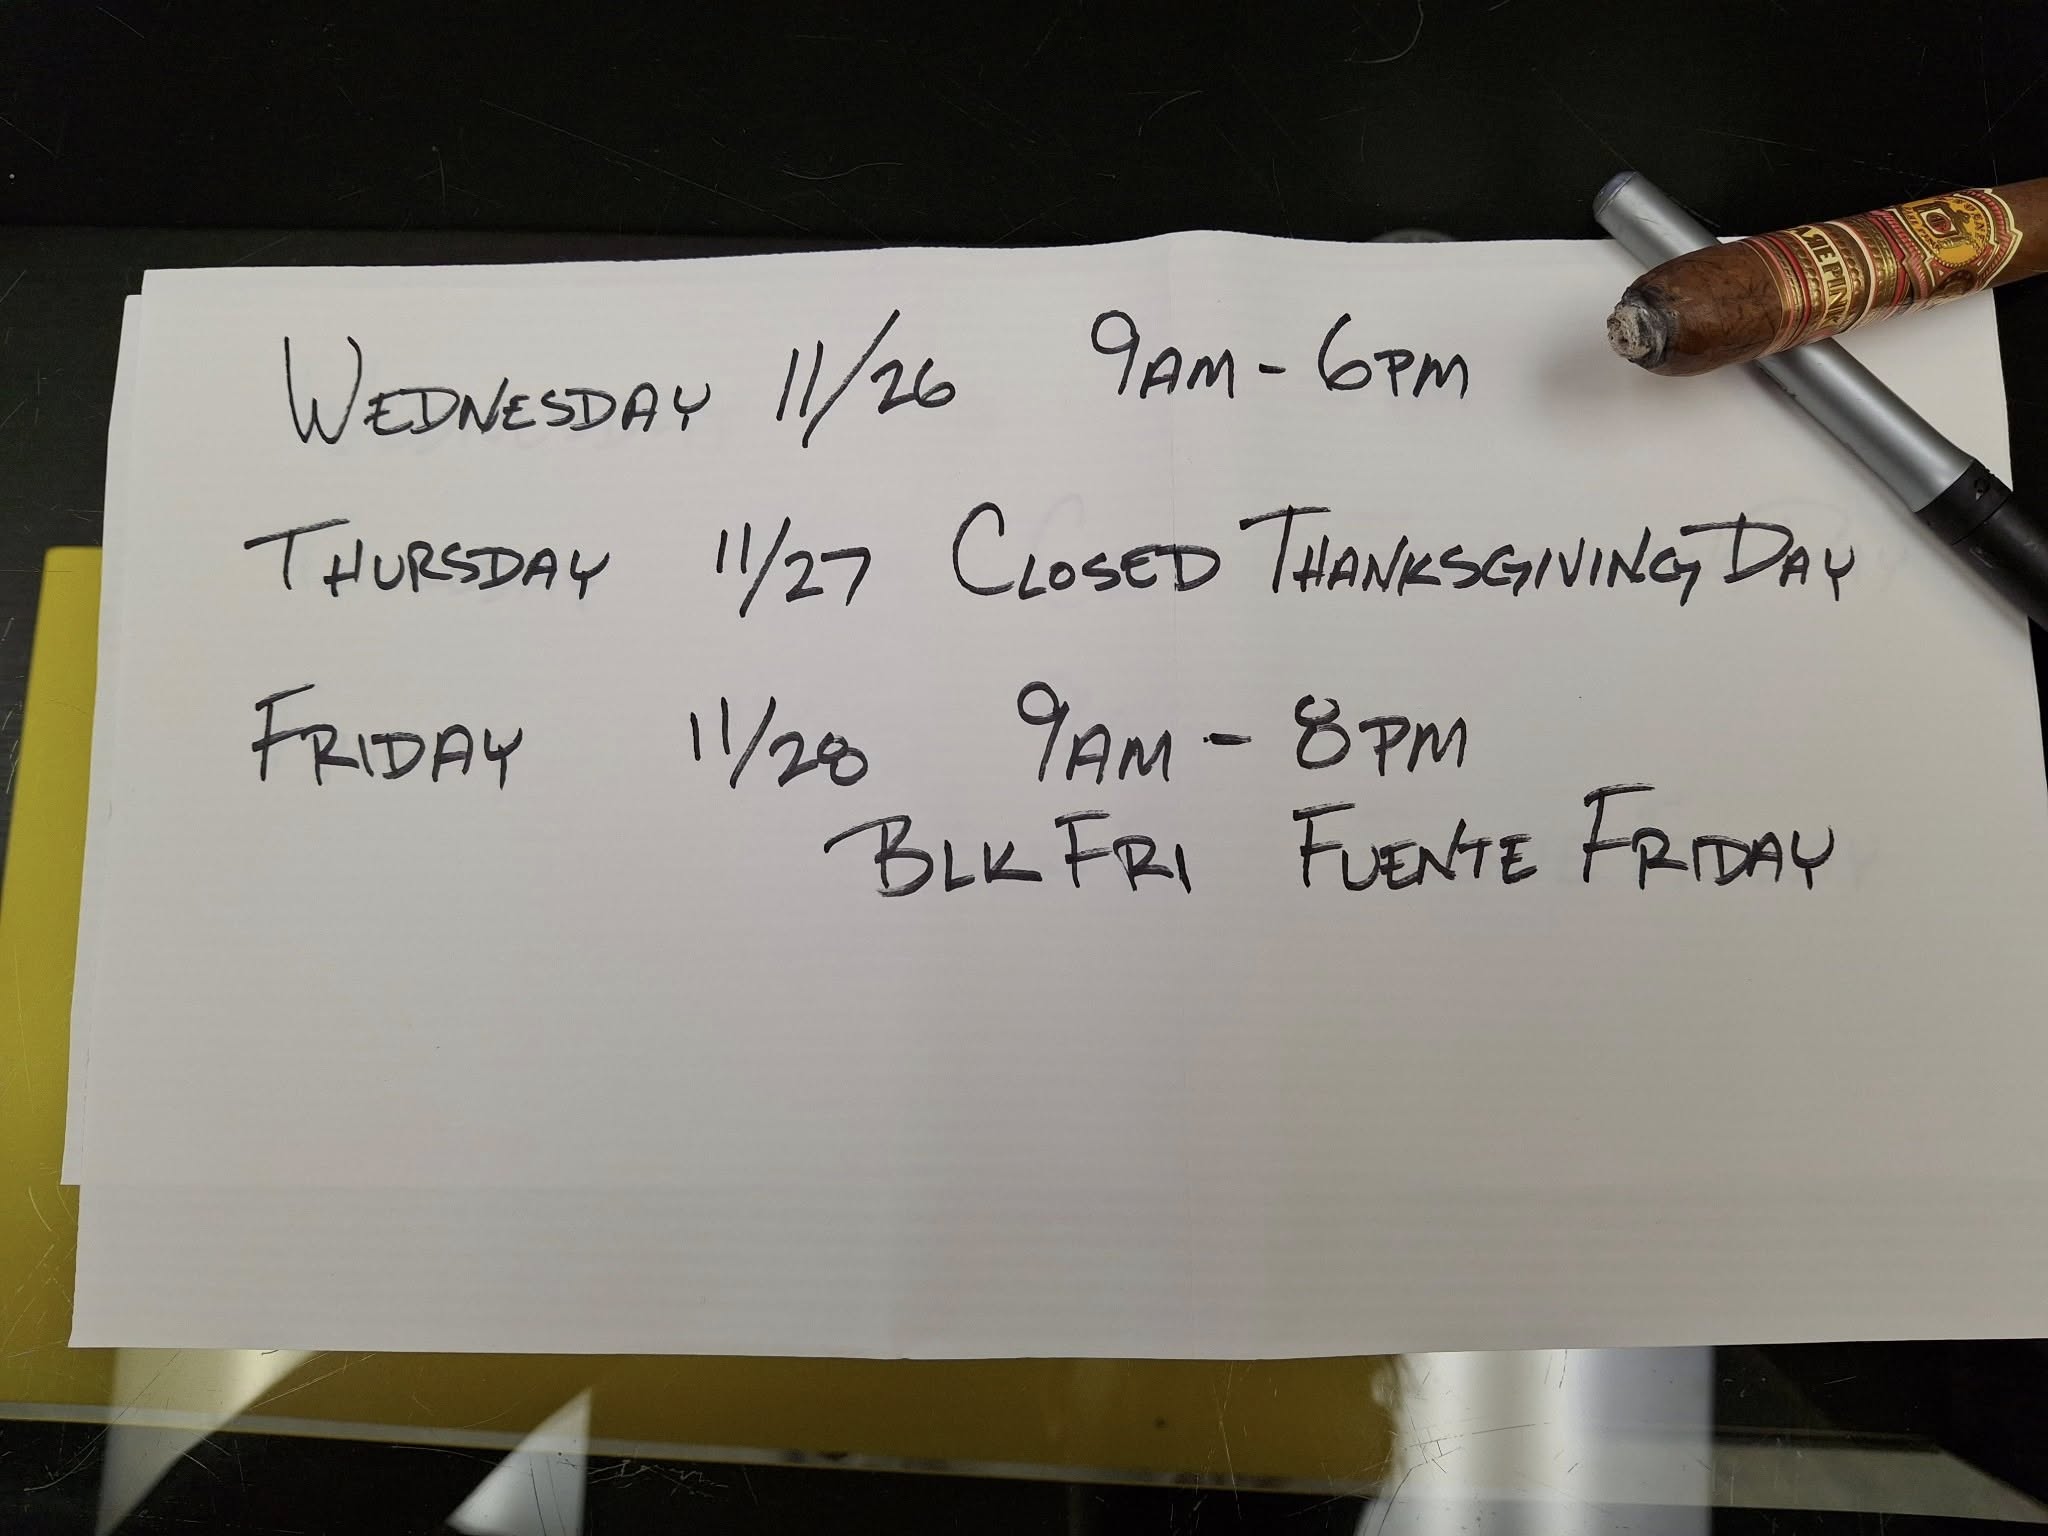 WEDNESDAY 11/26 9AM - 6PM
THURSDAY 11/27 CLOSED THANKSGIVING DAY
FRIDAY 11/28 9AM - 8PM
BLK FRI FUENTE FRIDAY